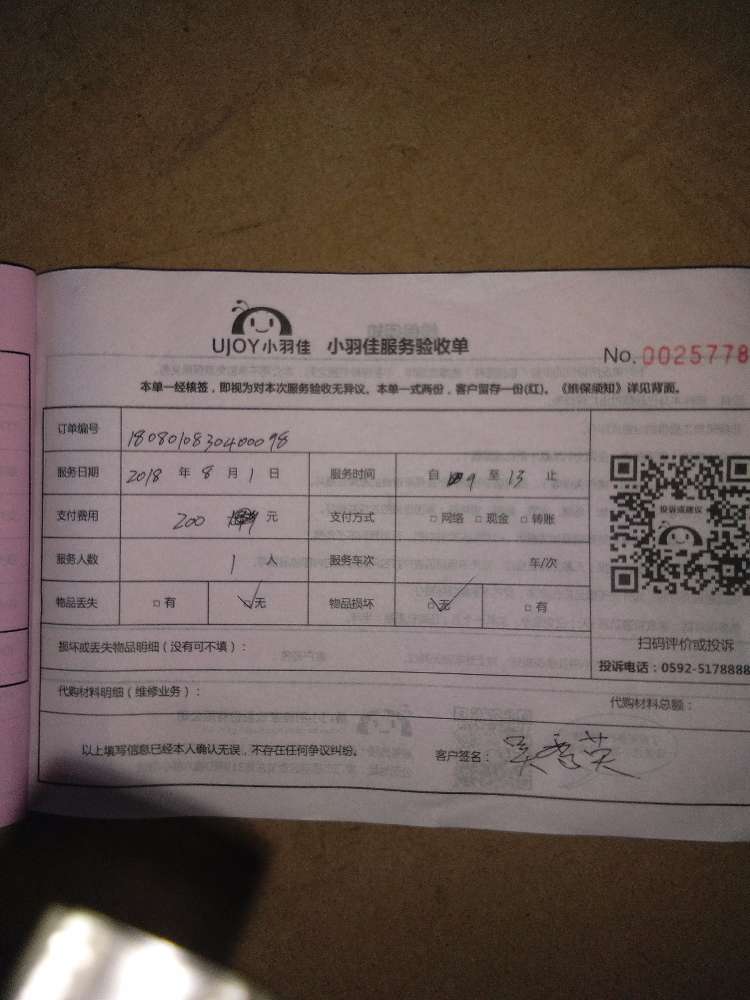 UJOY小羽佳 小羽佳服务验收单
No. 0025778
本单一经核签，即视为对本次服务验收无异议。本单一式两份，客户留存一份(红)。《维保须知》详见背面。
订单编号 1808010830400098
服务日期 2018 年 8 月 1 日 服务时间 自 9 至 13 止
支付费用 200 元 支付方式 □ 网络 □ 现金 □ 转账
服务人数 1 人 服务车次 车/次
物品丢失 □ 有 ☑无 物品损坏 ☑无 □ 有
投诉或建议
扫码评价或投诉
投诉电话：0592-5178888
损坏或丢失物品明细（没有可不填）：
代购材料明细（维修业务）： 代购材料总额：
以上填写信息已经本人确认无误，不存在任何争议纠纷。 客户签名： 吴秀英